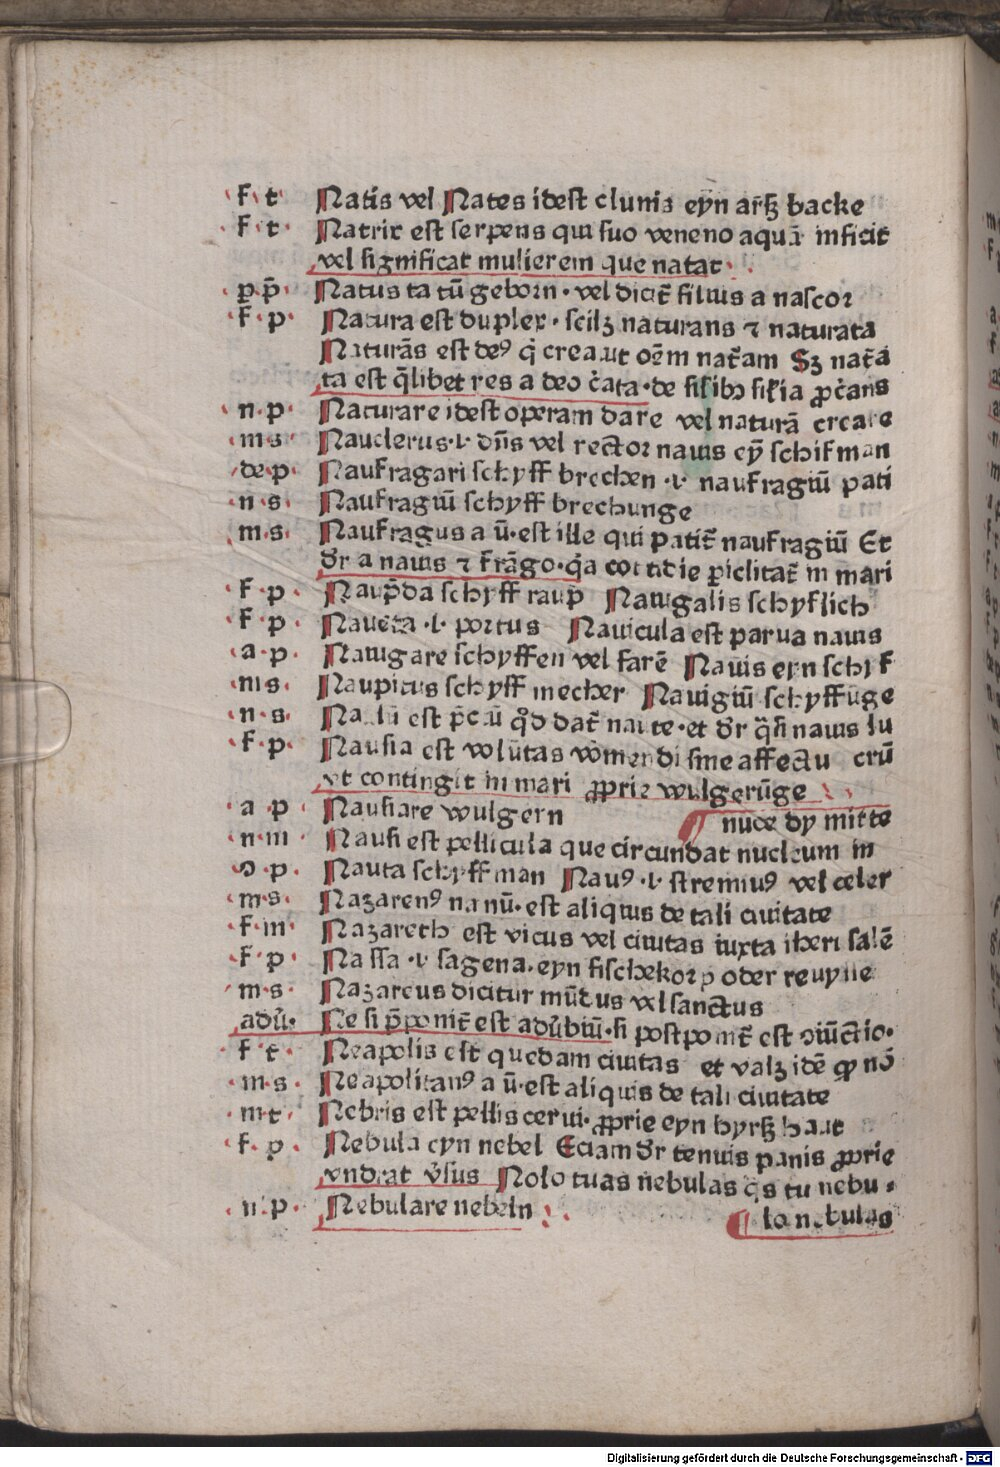 f t Natis vel Nates idest clunis eyn arſz backe
f t Natrix est serpens qui suo veneno aquā inficit
vel significat mulierem que natat
p p̄ Natus ta tū geborn · vel dicit̄ filius a nascor
f · p · Natura est duplex · scilz naturans ⁊ naturata
Naturās est deꝰ q̇ creauit oēm nat̄am Sz nat̄a
ta est q̄libet res a deo c̄ata · de
n · p · Naturare idest operam dare vel naturā creare
m s · Nauclerus · v · dn̄s vel rector nauis ey̅ schifman
de · p · Naufragari schyff brechen · v · naufragiū pati
n · s · Naufragiū schyff brechunge
m · s · Naufragus a ū · est ille qui patit̄ naufragiū Et
dr̄ a nauis ⁊ frāgo · q̇a cottidie ꝑiclitat̄ in mari
f · p · Naup̄da schyff raup Nauigalis schyflich
f · p · · v · portus Nauicula est parua nauis
a · p · Nauigare schyffen vel farē Nauis eyn schyf
m s · Naupicus schyff mecher Nauigiū schyffūge
n · s · est p̄c̄iū qd̄ dat̄ naute · et dr̄ q̄si nauis lu
f · p · Nausia est volūtas vomendi sine affectu crū
vt contingit in mari ꝓprie wulgerūge
a p · Nausiare wulgern ¶ nuce dy mitte
n · m Nausi est pellicula que circundat nucleum in
ɔ · p · Nauta schyffman Nauꝰ · v · strenuuꝰ vel celer
m · s · Nazarenꝰ na nū · est aliquis de tali ciuitate
f · m · Nazareth est vicus vel ciuitas iuxta iherusalē
f · p · Nassa · v · sagena · eyn fischekorp oder
m · s · Nazareus dicitur mūdus vel sanctus
adū · Ne si p̄ponit̄ est adūbiū · si postponit̄ est ɔiūctio ·
f · t · Neapolis est quedam ciuitas et valz idē ꝙ nō
m · s · Neapolitanꝰ a ū · est aliquis de tali ciuitate
m · t · Nebris est pellis cerui · ꝓprie eyn hyrſz haut
f · p · Nebula eyn nebel Eciam dr̄ tenuis panis ꝓprie
v̄sus Nolo tuas nebulas q̄s tu nebu ·
n · p · Nebulare nebeln ¶ lo nebulas
Digitalisierung gefördert durch die Deutsche Forschungsgemeinschaft - DFG